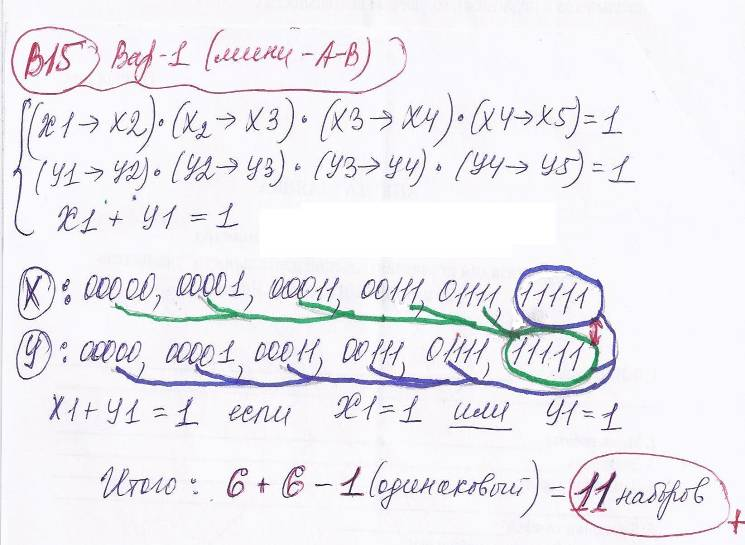 В15 Вар-1 (мини-А-В)
(X1→X2)·(X2→X3)·(X3→X4)·(X4→X5)=1
(У1→У2)·(У2→У3)·(У3→У4)·(У4→У5)=1
X1+У1=1
X: 00000, 00001, 00011, 00111, 01111, 11111
У: 00000, 00001, 00011, 00111, 01111, 11111
X1+У1=1 если X1=1 или У1=1
Итого: 6+6-1(одинаковый)=11 наборов
+